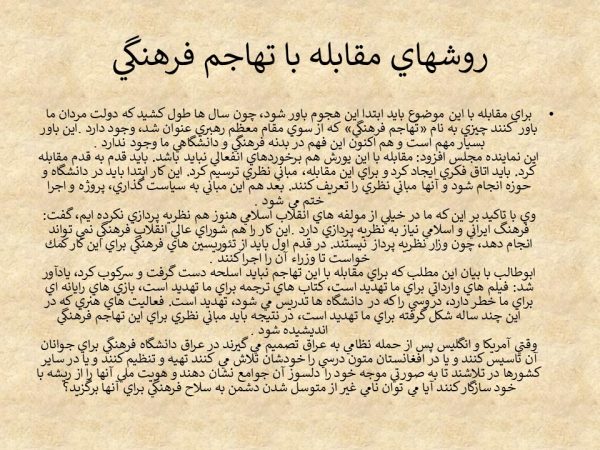 روشهاي مقابله با تهاجم فرهنگي
• براي مقابله با اين موضوع بايد ابتدا اين هجوم باور شود، چون سال ها طول كشيد كه دولت مردان ما
باور كنند چيزي به نام «تهاجم فرهنگي» كه از سوي مقام معظم رهبري عنوان شد، وجود دارد .اين باور
بسيار مهم است و هم اكنون اين فهم در بدنه فرهنگي و دانشگاهي ما وجود ندارد .
اين نماينده مجلس افزود: مقابله با اين يورش هم برخوردهاي انفعالي نبايد باشد. بايد قدم به قدم مقابله
كرد. بايد اتاق فكري ايجاد كرد و براي اين مقابله، مباني نظري ترسيم كرد. اين كار ابتدا بايد در دانشگاه و
حوزه انجام شود و آنها مباني نظري را تعريف كنند. بعد هم اين مباني به سياست گذاري، پروژه و اجرا
ختم مي شود .
وي با تاكيد بر اين كه ما در خيلي از مولفه هاي انقلاب اسلامي هنوز هم نظريه پردازي نكرده ايم، گفت:
فرهنگ ايراني و اسلامي نياز به نظريه پردازي دارد .اين كار را هم شوراي عالي انقلاب فرهنگي نمي تواند
انجام دهد، چون وزرا نظريه پرداز نيستند. در قدم اول بايد از تئوريسين هاي فرهنگي براي اين كار كمك
خواست تا وزراء آن را اجرا كنند .
ابوطالب با بيان اين مطلب كه براي مقابله با اين تهاجم نبايد اسلحه دست گرفت و سركوب كرد، يادآور
شد: فيلم هاي وارداتي براي ما تهديد است، كتاب هاي ترجمه براي ما تهديد است، بازي هاي رايانه اي
براي ما خطر دارد، دروسي را كه در دانشگاه ها تدريس مي شود، تهديد است. فعاليت هاي هنري كه در
اين چند ساله شكل گرفته براي ما تهديد است، در نتيجه بايد مباني نظري براي اين تهاجم فرهنگي
انديشيده شود .
وقتي آمريكا و انگليس پس از حمله نظامي به عراق تصميم مي گيرند در عراق دانشگاه فرهنگي براي جوانان
آن تاسيس كنند و يا در افغانستان متون درسي را خودشان تلاش مي كنند تهيه و تنظيم كنند و يا در ساير
كشورها در تلاشند تا به صورتي موجه خود را دلسوز آن جوامع نشان دهند و هويت ملي آنها را از ريشه با
خود سازگار كنند آيا مي توان نامي غير از متوسل شدن دشمن به سلاح فرهنگي براي آنها برگزيد؟